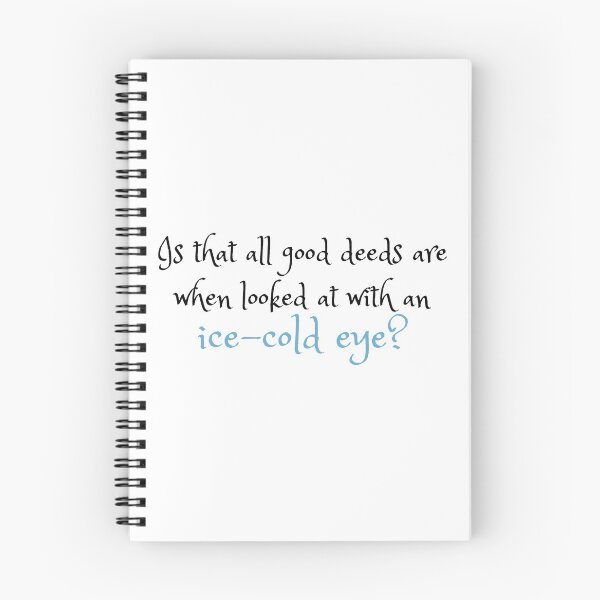 Is that all good deeds are
when looked at with an
ice-cold eye?